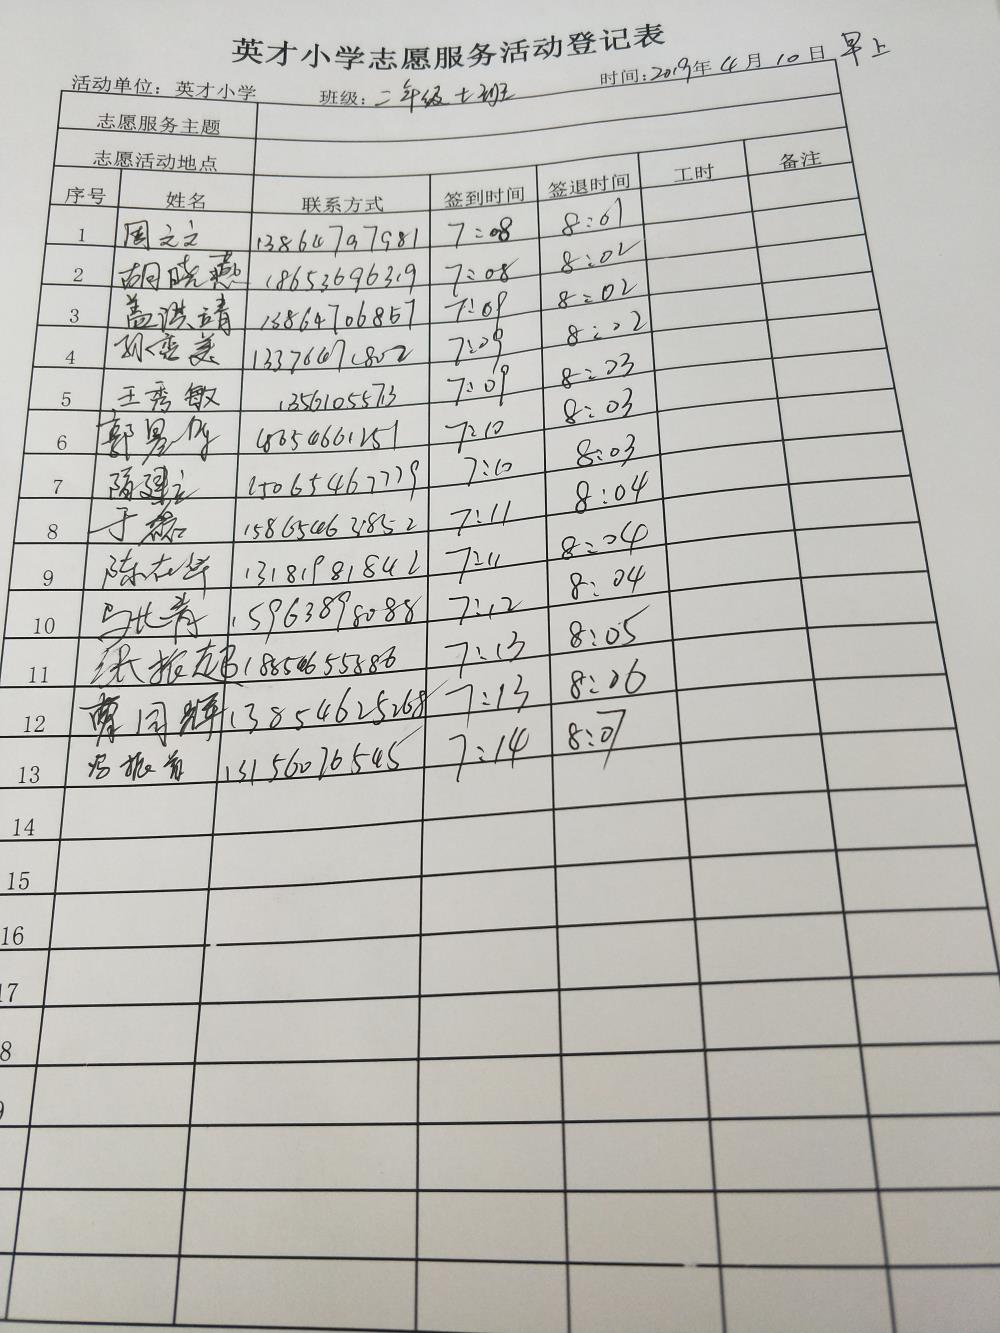 英才小学志愿服务活动登记表
活动单位：英才小学 班级：二年级七班 时间：2019年4月10日 早上
志愿服务主题
志愿活动地点
序号 姓名 联系方式 签到时间 签退时间 工时 备注
1 周文文 13864797981 7:08 8:01
2 胡晓燕 18653696319 7:08 8:02
3 盖洪靖 13864706857 7:09 8:02
4 7:09 8:02
5 王秀敏 13561055713 7:09 8:03
6 7:10 8:03
7 15065467779 7:10 8:03
8 于磊 15865463852 7:11 8:04
9 陈在华 13181981842 7:11 8:04
10 15963898088 7:12 8:04
11 张振超 18854655886 7:13 8:05
12 13854625268 7:13 8:06
13 13156076545 7:14 8:07
14
15
16
17
8
9